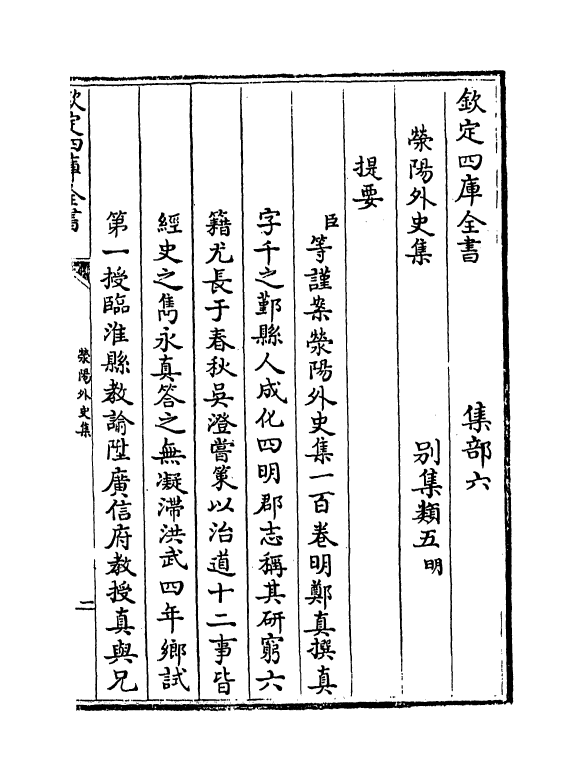 欽定四庫全書　集部六
滎陽外史集　別集類五明
提要
臣等謹案滎陽外史集一百卷明鄭真撰真
字千之鄞縣人成化四明郡志稱其研窮六
籍尤長于春秋吳澄嘗策以治道十二事皆
經史之雋永真答之無凝滯洪武四年鄉試
第一授臨淮縣教諭陞廣信府教授真與兄
欽定四庫全書
滎陽外史集
一